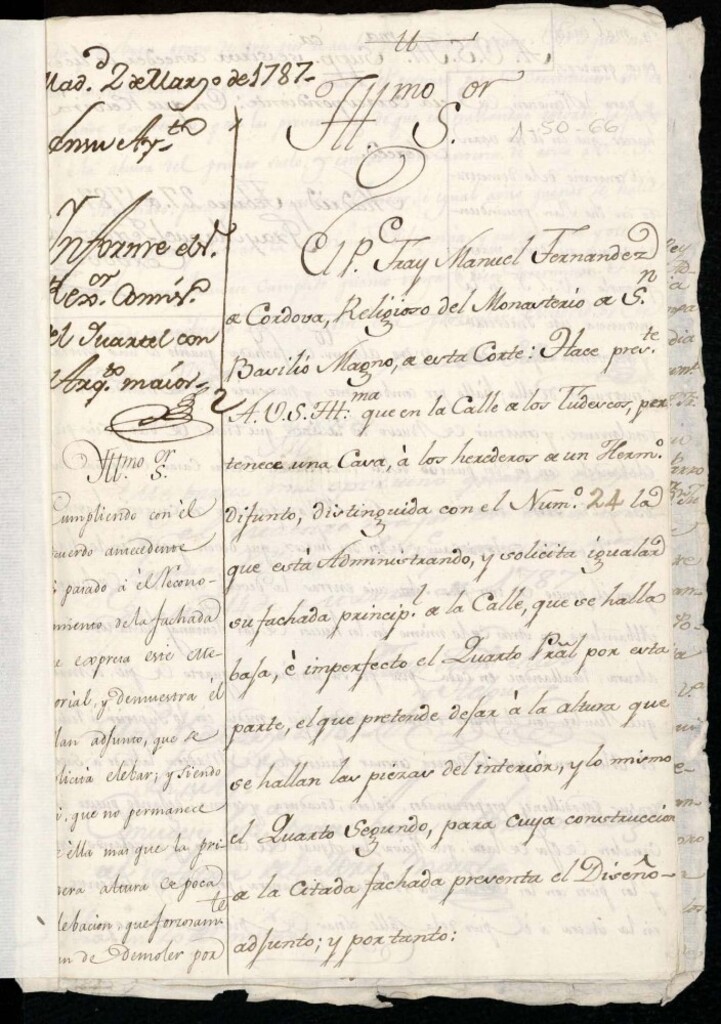 Mad.d 2 de Marzo de 1787
En su Ay.to
Informe el S.r
Rex.or Comis.o
el Quartel con
Arq.to maior
Ill.mo S.or
Cumpliendo con él
acuerdo antecedente
pasado á el recono-
cimiento de la fachada
expresa este Me-
morial, y demuestra él
Plan adjunto, que se
solicita elebar; y siendo
que no permanece
ella mas que la pri-
mera altura de poca
elebacion que forzosam.te
han de demoler por
Ill.mo S.or
1-50-66
El P.e Fray Manuel Fernandez
de Cordova, Religioso del Monasterio de S.n
Basilio Magno, de esta Corte: Hace pres.te
A. V. S. Ill.ma que en la Calle de los Tudescos, per
tenece una Casa, à los herederos de un Herm.o
difunto, distinguida con el Num.o 24 la
que está Administrando, y solicita igualar
su fachada princip.l de la Calle, que se halla
baja, è imperfecto el Quarto Pral por esta
parte, el que pretende dejar à la altura que
se hallan las piezas del interior, y lo mismo
el Quarto Segundo, para cuya construccion
de la Citada fachada presenta el Diseño
adjunto; y por tanto: